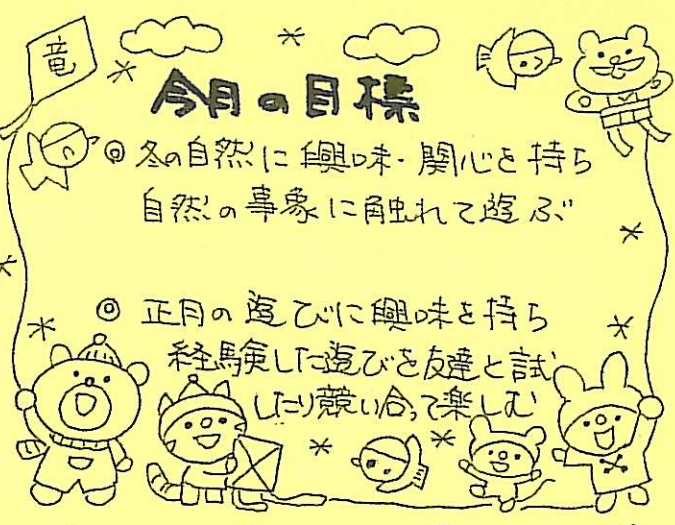 竜
今月の目標
◎ 冬の自然に興味・関心を持ち
自然の事象に触れて遊ぶ
◎ 正月の遊びに興味を持ち
経験した遊びを友達と試
したり競い合って楽しむ